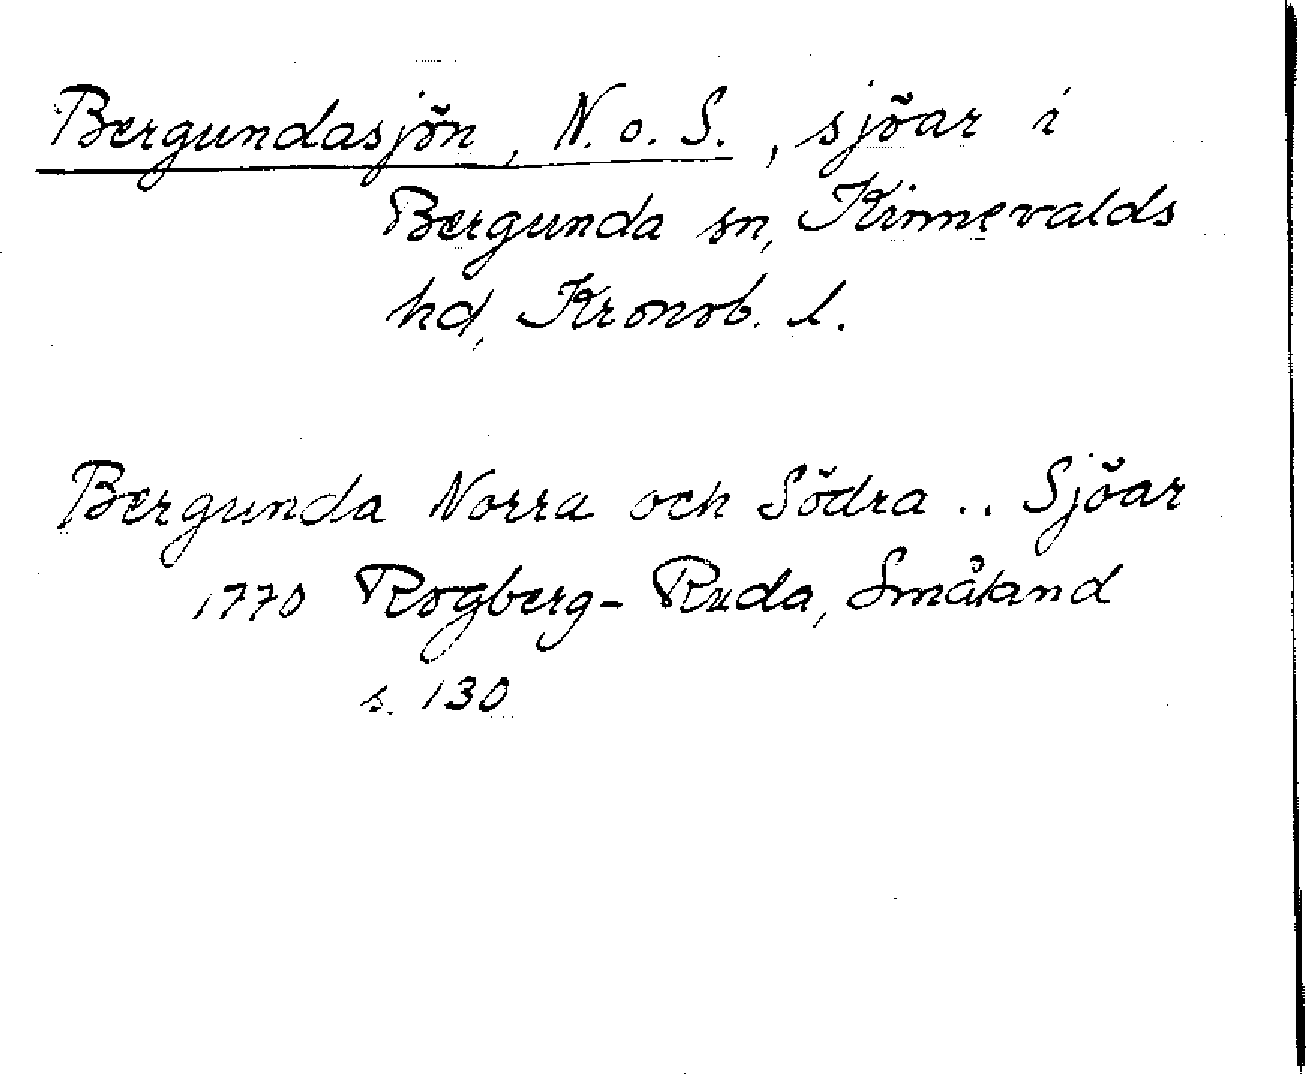 Bergundasjön, N. o. S., sjöar i
Bergunda sn, Kinnevalds
hd, Kronob. l.
Bergunda Norra och Södra .. Sjöar
1770 Rogberg-Ruda, Småland
s. 130